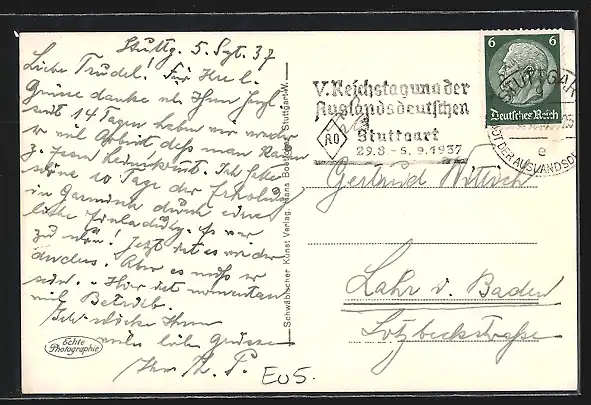 Stuttg. 5. Spt. 37
Liebe Trudel! Für Ihre l.
Grüsse danke ich Ihnen
seit 14 Tagen haben wir wieder
so viel Arbeit dass man kaum
z.
schöne 10 Tage der Erholung
in Garmisch durch eine
liebe Einladung. Es war
zu schön! Jetzt ist es wieder
anders. Aber es muss so
sein. - Hier ist momentan
viel Betrieb.
Ich Ihnen
viele liebe Grüsse
Ihre
echte
Photographie
Schwäbischer Kunst Verlag, Hans Boettcher, Stuttgart-W.
V. Reichstagung der
Auslandsdeutschen
AO
Stuttgart
29.8 - 5.9.1937
6 6
Deutsches Reich
STUTTGAR
e
DT DER AUSLANDSD
Gertrud Wittich
Lahr i. Baden
Lotzbeckstraße
EuS.